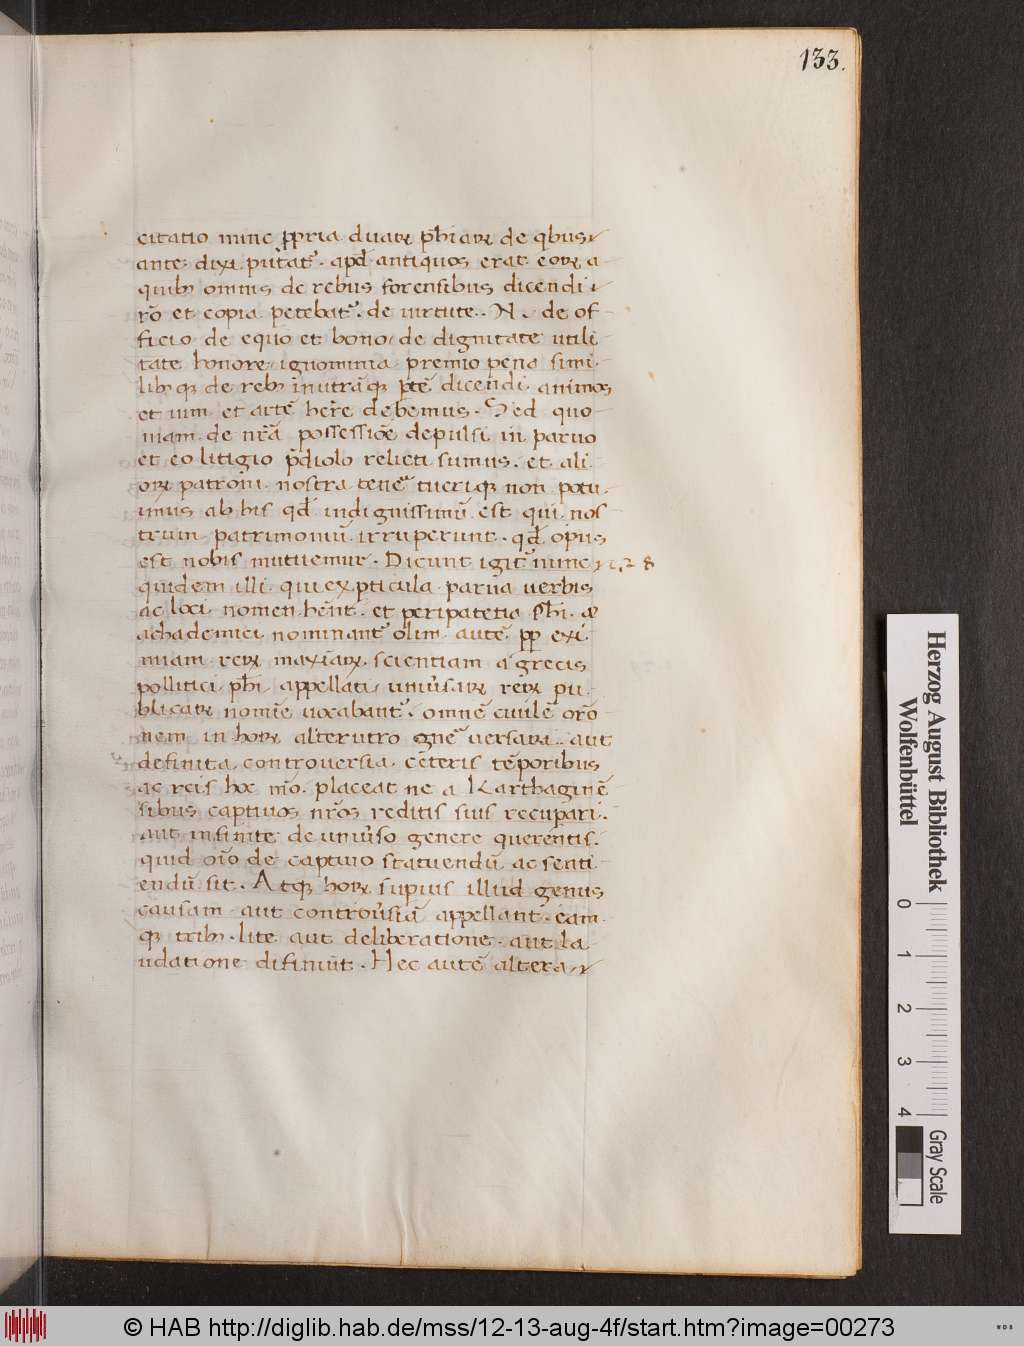 133.
citatio nunc ꝓpria duaꝝ ph̄iaꝝ de qbus
ante dixi putat᷑. apd̄ antiquos erat eoꝝ a
quibꝫ omnis de rebus forensibus dicendi
rō et copia petebat᷑. de uirtute. N. de of
ficio de equo et bono de dignitate utili
tate honore ignominia premio pena simi
libꝫ qꝫ de rebꝫ in utrāqꝫ ꝑtē dicendi animos
et uim et artē hēre debemus. Sed quo
niam de nr̄a possessiōe depulsi in paruo
et eo litigio p̄diolo relicti sumus. et ali
oꝝ patroni nostra tene tueriqꝫ non potu
imus ab his qd̄ indignissimū est qui nos
trum patrimoniū irruperunt. qd̄ opus
est nobis mutuemur. Dicunt igit᷑ nunc
quidem illi qui ex ꝑticula parua urbis
ac loci nomen hēnt. et peripatetia ph̄i
achademici nominant᷑ olim autē ꝓp exi
miam reꝝ maxiāꝝ scientiam a grecis
pollitici ph̄i appellati uniūsaꝝ reꝝ pu
blicaꝝ nomīe uocabant᷑. omnē ciuilē orō
nem in hoꝝ alterutro gne᷑ versari. aut
definita controuersia cēteris tēporibus
ac reis hoc mō. placeat ne a Karthaginē
sibus captiuos nr̄os reditis suis recupari.
aut infinite de uniūso genere querentis.
quid oīo de captiuo statuendū ac senti
endū sit. Atqꝫ hoꝝ supius illud genus
causam aut controūsiā appellant. eam
qꝫ tribꝫ. lite aut deliberatione. aut la
udatione difiniūt. Hec autē altera
Herzog August Bibliothek
Wolfenbüttel
0 1 2 3 4
Gray Scale
© HAB http://diglib.hab.de/mss/12-13-aug-4f/start.htm?image=00273